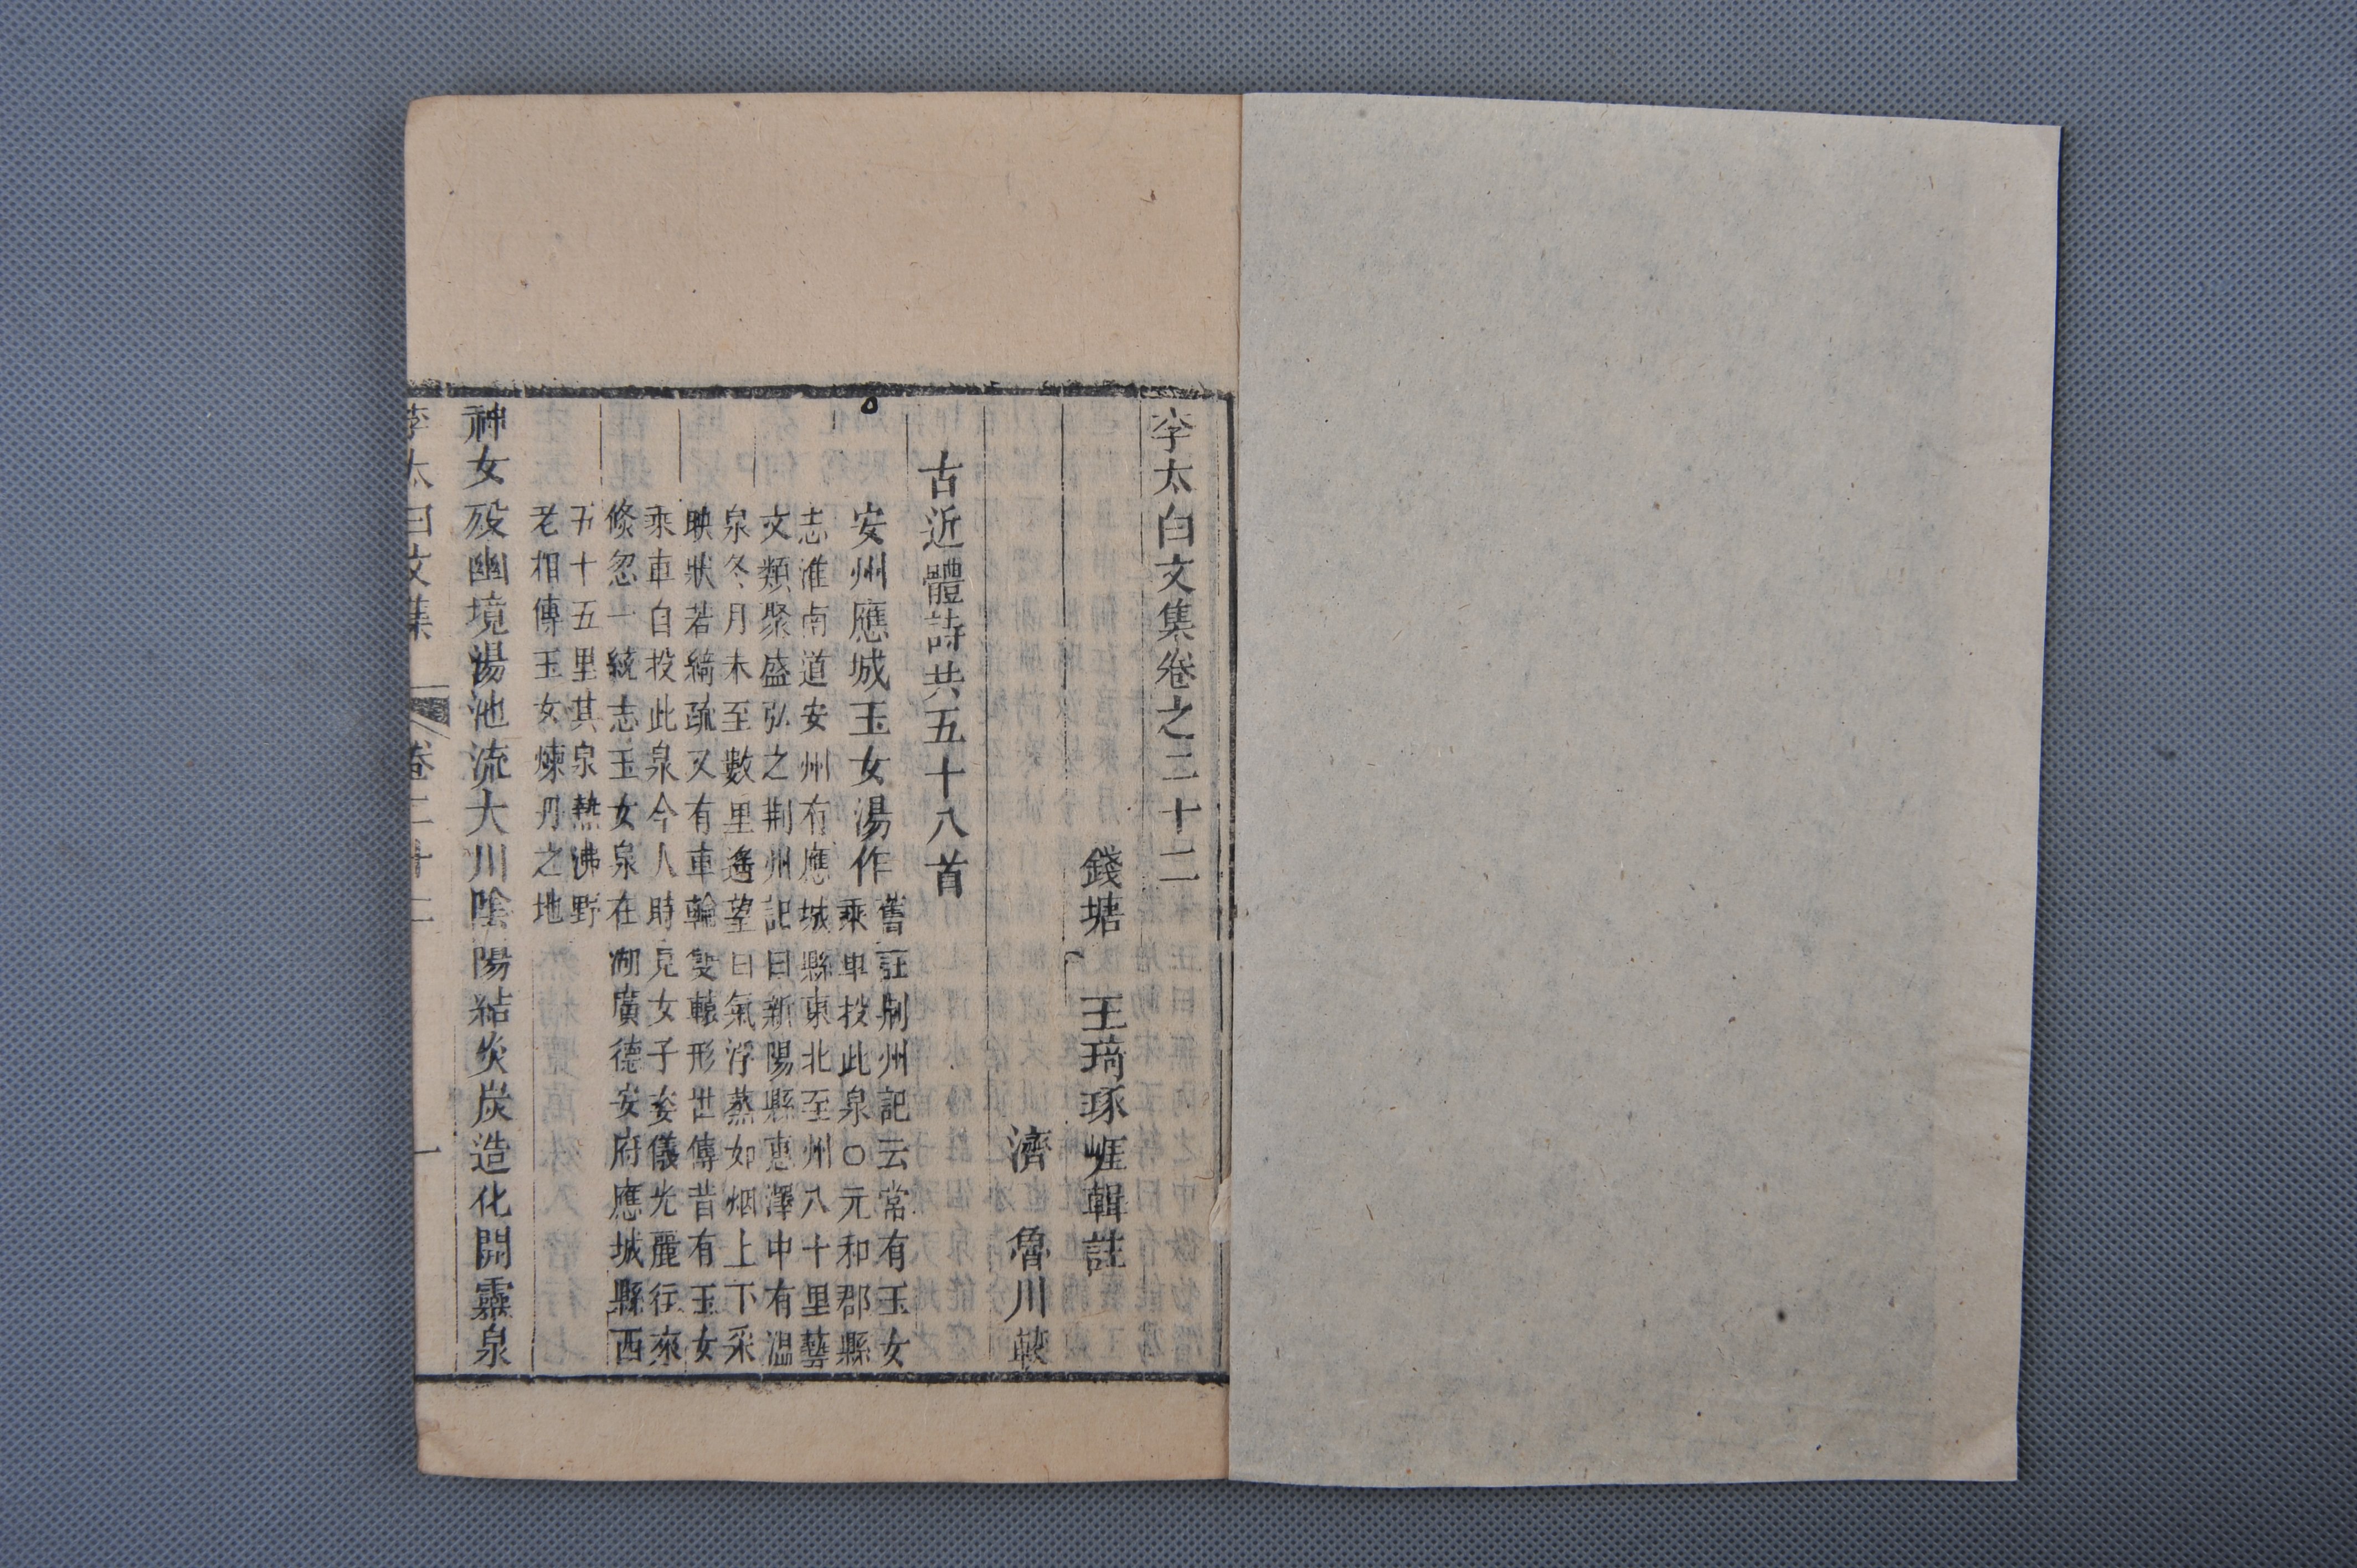 李太白文集卷之二十二
錢塘 王琦琢崖輯註
濟 魯川 較
古近體詩共五十八首
安州應城玉女湯作
舊註荊州記云常有玉女
乘車投此泉○元和郡縣
志淮南道安州有應城縣東北至州八十里藝
文類聚盛弘之荊州記曰新陽縣惠澤中有温
泉冬月未至數里遙望白氣浮蒸如烟上下采
映狀若綺疏又有車輪雙轅形世傳昔有玉女
乘車自投此泉今人時見女子姿儀光麗行來
倐忽一統志玉女泉在湖廣德安府應城縣西
五十五里其泉熱沸野
老相傳玉女煉丹之地
神女歿幽境湯池流大川陰陽結炎炭造化開靈泉
李太白文集 卷二十二 一